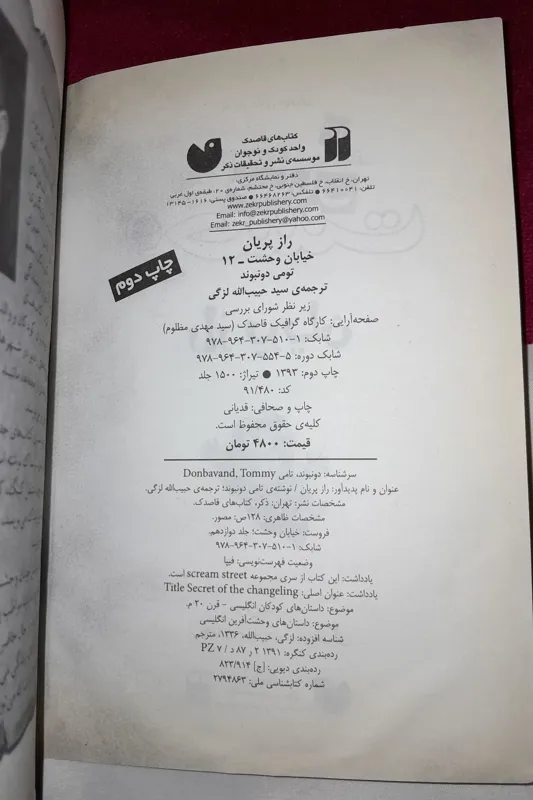 کتاب‌های قاصدک
واحد کودک و نوجوان
موسسه‌ی نشر و تحقیقات ذکر
دفتر و نمایشگاه مرکزی:
تهران، خ انقلاب، خ فلسطین جنوبی، خ محتشم، شماره‌ی ۲۰، طبقه‌ی اول غربی
تلفن: ۶۶۴۱۰۰۴۱ ● تلفکس: ۶۶۴۶۸۲۶۳ ● صندوق پستی: ۱۶۱۶-۱۳۱۴۵
www.zekrpublishery.com
Email: info@zekrpublishery.com
Email: zekr_publishery@yahoo.com
راز پریان
خیابان وحشت ـ ۱۲
چاپ دوم
تومی دونبوند
ترجمه‌ی سید حبیب‌الله لزگی
زیر نظر شورای بررسی
صفحه‌آرایی: کارگاه گرافیک قاصدک (سید مهدی مظلوم)
شابک: ۱-۵۱۰-۳۰۷-۹۶۴-۹۷۸
شابک دوره: ۵-۵۵۴-۳۰۷-۹۶۴-۹۷۸
چاپ دوم: ۱۳۹۳ ● تیراژ: ۱۵۰۰ جلد
کد: ۹۱/۴۸۰
چاپ و صحافی: قدیانی
کلیه‌ی حقوق محفوظ است.
قیمت: ۴۸۰۰ تومان
سرشناسه: دونبوند، تامی Donbavand, Tommy
عنوان و نام پدیدآور: راز پریان / نوشته‌ی تامی دونبوند؛ ترجمه‌ی حبیب‌الله لزگی.
مشخصات نشر: تهران: ذکر، کتاب‌های قاصدک.
مشخصات ظاهری: ۱۲۸ص: مصور.
فروست: خیابان وحشت؛ جلد دوازدهم.
شابک: ۱-۵۱۰-۳۰۷-۹۶۴-۹۷۸
وضعیت فهرست‌نویسی: فیپا
یادداشت: این کتاب از سری مجموعه scream street است.
یادداشت: عنوان اصلی: Title Secret of the changeling
موضوع: داستان‌های کودکان انگلیسی - قرن ۲۰ م.
موضوع: داستان‌های وحشت‌آفرین انگلیسی
شناسه افزوده: لزگی، حبیب‌الله، ۱۳۳۶، مترجم
رده‌بندی کنگره: ۱۳۹۱ ۲ ر ۸۷ د / PZ ۷
رده‌بندی دیویی: [ج] ۸۲۳/۹۱۴
شماره کتابشناسی ملی: ۲۷۹۴۸۶۳